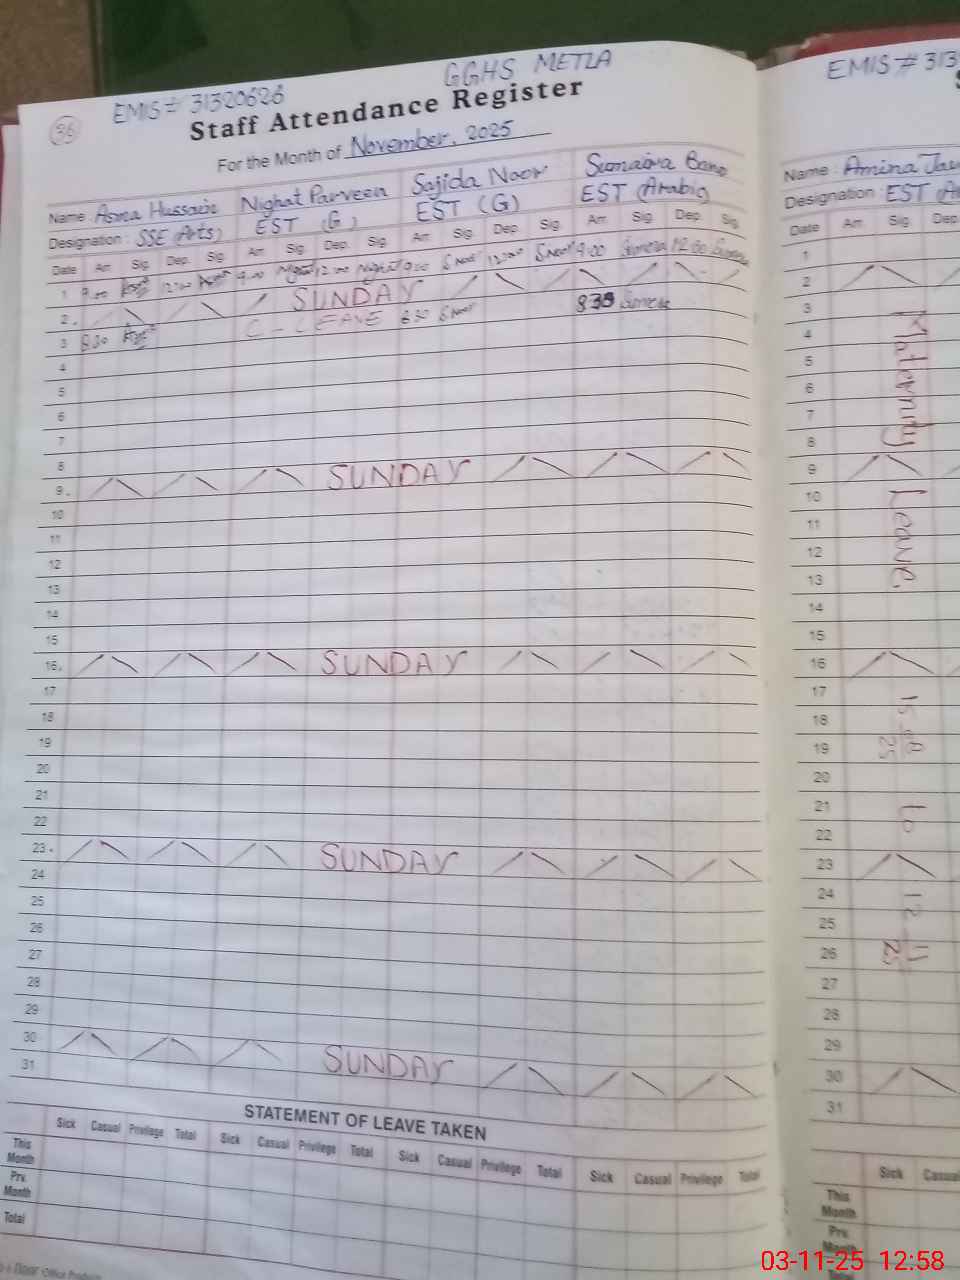 GGHS METLA
EMIS # 31320626
36
Staff Attendance Register
For the Month of November, 2025
Name : Asma Hussain Nighat Parveen Sajida Noor Sumaira Bano
Designation : SSE (Arts) EST (G) EST (G) EST (Arabic)
Date Arr. Sig. Dep. Sig. Arr. Sig. Dep. Sig. Arr. Sig. Dep. Sig. Arr. Sig. Dep. Sig.
1 9:00 12:00 9:00 Nighat 12:00 Nighat 9:00 S.Noor 12:00 S.Noor 9:00 12:00
2. SUNDAY
3 830 C-LEAVE 830 S.Noor 835
4
5
6
7
8
9. SUNDAY
10
11
12
13
14
15
16. SUNDAY
17
18
19
20
21
22
23. SUNDAY
24
25
26
27
28
29
30 SUNDAY
31
STATEMENT OF LEAVE TAKEN
Sick Casual Privilege Total Sick Casual Privilege Total Sick Casual Privilege Total Sick Casual Privilege Total
This Month
Prv. Month
Total
EMIS # 313
Name : Amina
Designation : EST
Date Arr. Sig. Dep.
1
2
3
4
5
6
7
8
9
10
11
12
13
14
15
16
17
18
19
20
21
22
23
24
25
26
27
28
29
30
31
Maternity Leave.
to
Sick Casual
This Month
Prv. Month
03-11-25 12:58